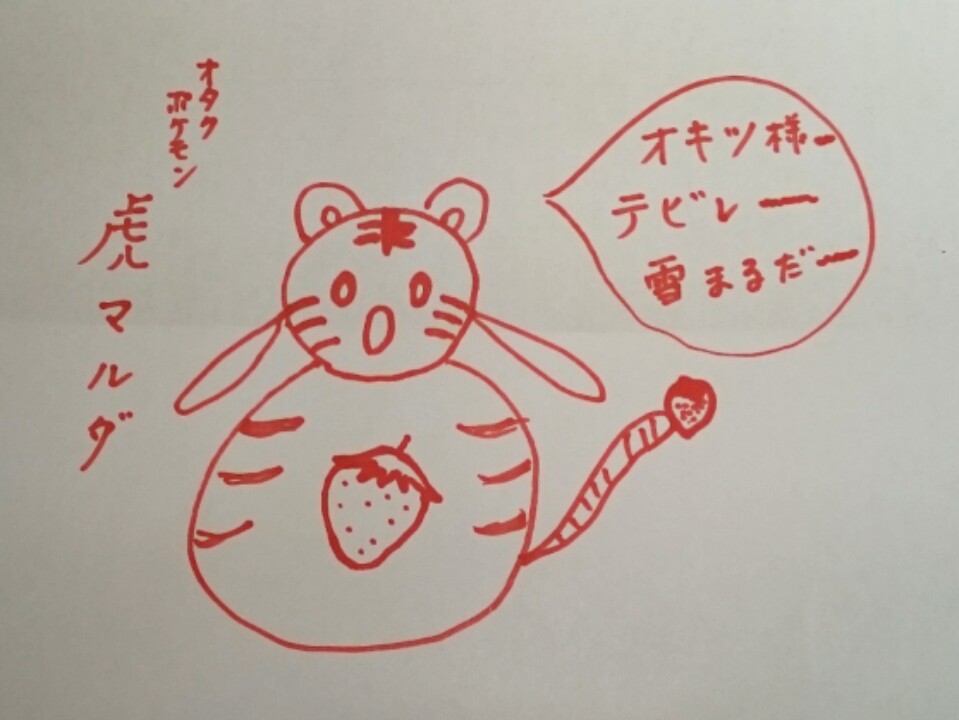 オタク
ポケモン
虎マルダ
オキツ様ー
テビレー
雪まるだー